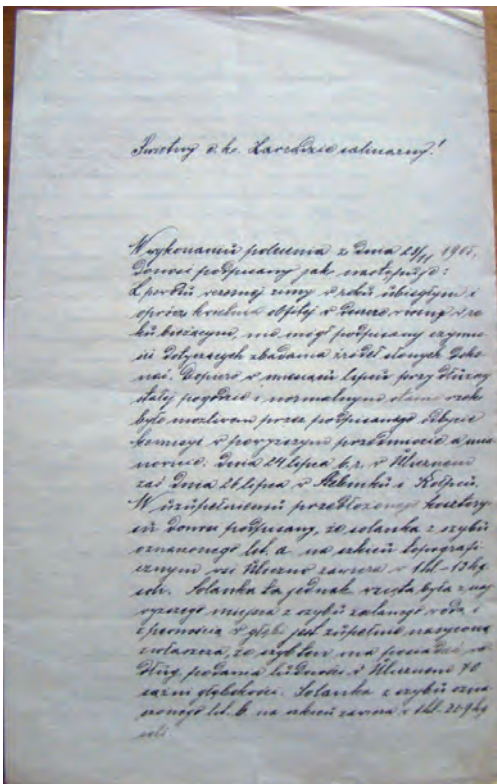 Świetny c. k. Zarządzie salinarny!
W wykonaniu polecenia z dnia 28/11 1905,
donosi podpisany jak następuje:
Z powodu wczesnej zimy w roku ubiegłym i
oprócz kwietnia obfitej w deszcze wiosny w ro-
ku bieżącym, nie mógł podpisany czynno-
ści dotyczących zbadania źródeł słonych doko-
nać. Dopiero w miesiącu lipcu przy dłuższej
stałej pogodzie i normalnym stanie rzek
było możliwem przez podpisanego odbycie
komisyi w powyższym przedmiocie a mia-
nowicie: dnia 24 lipca b. r. w Ulucznem
zaś dnia 26 lipca w Stebniku i Kołpcu.
W uzupełnieniu przedłożonego kosztory-
su donosi podpisany, że solanka z szybu
oznaczonego lit. a na szkicu topografi-
cznym wsi Uluczno zawiera w 1 hl - 13 kg
soli. Solanka ta jednak wzięta była z naj-
wyższego miejsca z szybu zalanego wodą i
z pewnością w głębi jest zupełnie nasyconą
zwłaszcza, że szyb ten ma posiadać we-
dług podania ludności w Ulucznem 70
sążni głębokości. Solanka z szybu ozna-
czonego lit. b na szkicu zawiera w 1 hl -
soli